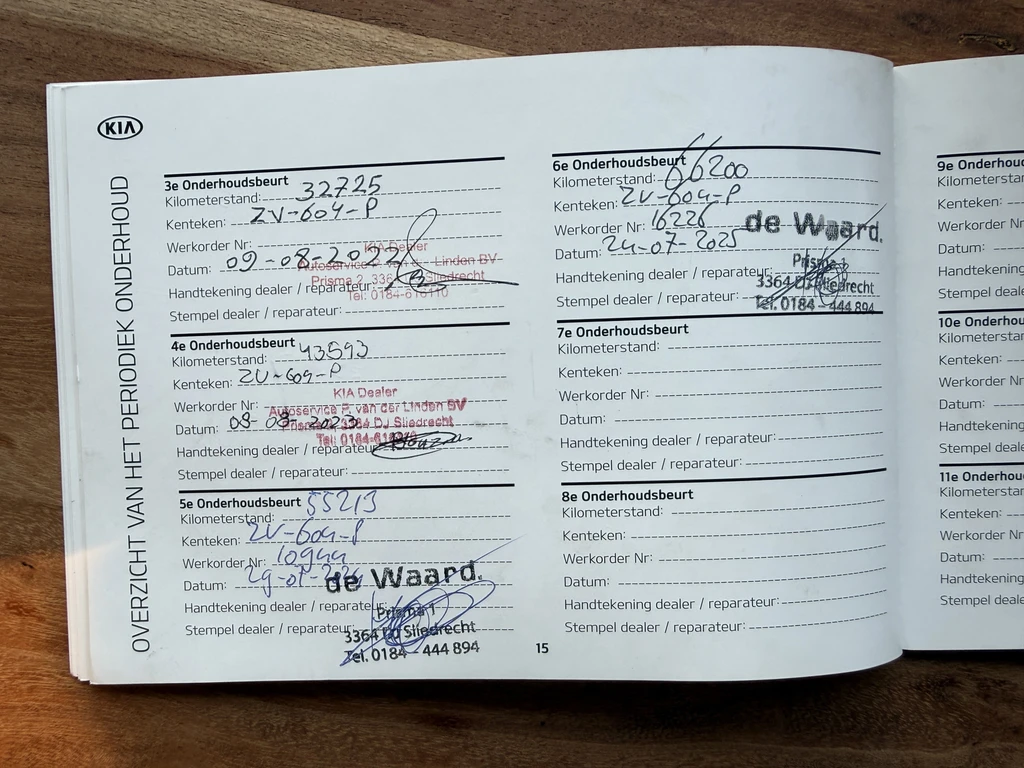 KIA
OVERZICHT VAN HET PERIODIEK ONDERHOUD
3e Onderhoudsbeurt
Kilometerstand: 32725
Kenteken: ZV-604-P
Werkorder Nr:
Datum: 09-08-2022
Handtekening dealer / reparateur:
Stempel dealer / reparateur:
KIA Dealer
Autoservice Linden BV
Prisma 2, 336 Sliedrecht
Tel: 0184-616110
4e Onderhoudsbeurt
Kilometerstand: 43593
Kenteken: ZV-604-P
Werkorder Nr:
Datum: 08-08-2023
Handtekening dealer / reparateur
Stempel dealer / reparateur:
KIA Dealer
Autoservice P. van der Linden BV
Prisma 2, 3364 DJ Sliedrecht
Tel: 0184-616110
5e Onderhoudsbeurt
Kilometerstand: 55213
Kenteken: ZV-604-P
Werkorder Nr: 10944
Datum: 29-07-2024
Handtekening dealer / reparateur:
Stempel dealer / reparateur:
de Waard.
Prisma 1
3364 DJ Sliedrecht
Tel. 0184 - 444 894
15
6e Onderhoudsbeurt
Kilometerstand: 66200
Kenteken: ZV-604-P
Werkorder Nr: 16226
Datum: 24-07-2025
Handtekening dealer / reparateur:
Stempel dealer / reparateur:
de Waard.
Prisma 1
3364 DJ Sliedrecht
Tel. 0184 - 444 894
7e Onderhoudsbeurt
Kilometerstand:
Kenteken:
Werkorder Nr:
Datum:
Handtekening dealer / reparateur:
Stempel dealer / reparateur:
8e Onderhoudsbeurt
Kilometerstand:
Kenteken:
Werkorder Nr:
Datum:
Handtekening dealer / reparateur:
Stempel dealer / reparateur:
9e Onderhou
Kilometerstar
Kenteken:
Werkorder N
Datum:
Handtekening
Stempel deal
10e Onderhou
Kilometerstan
Kenteken:
Werkorder Ni
Datum:
Handtekening
Stempel deale
11e Onderhou
Kilometerstan
Kenteken:
Werkorder Nr
Datum:
Handtekening
Stempel deale